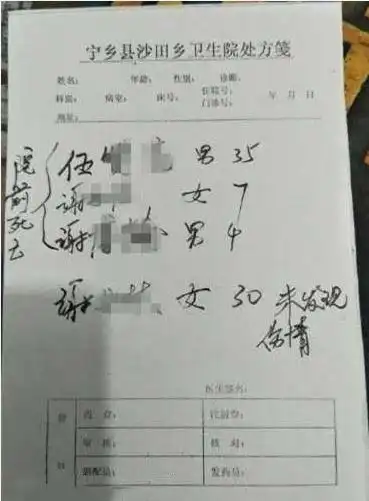 宁乡县沙田乡卫生院处方笺
姓名： 年龄： 性别： 诊断：
科室： 病室： 床号： 住院号： 门诊号： 年 月 日
地址：
院前死亡
伍 男 35
谢 女 7
谢 男 4
谢 女 30 未发现
伤情
医生签名：
药 价：
审 核： 核 对：
调配员： 发药员：